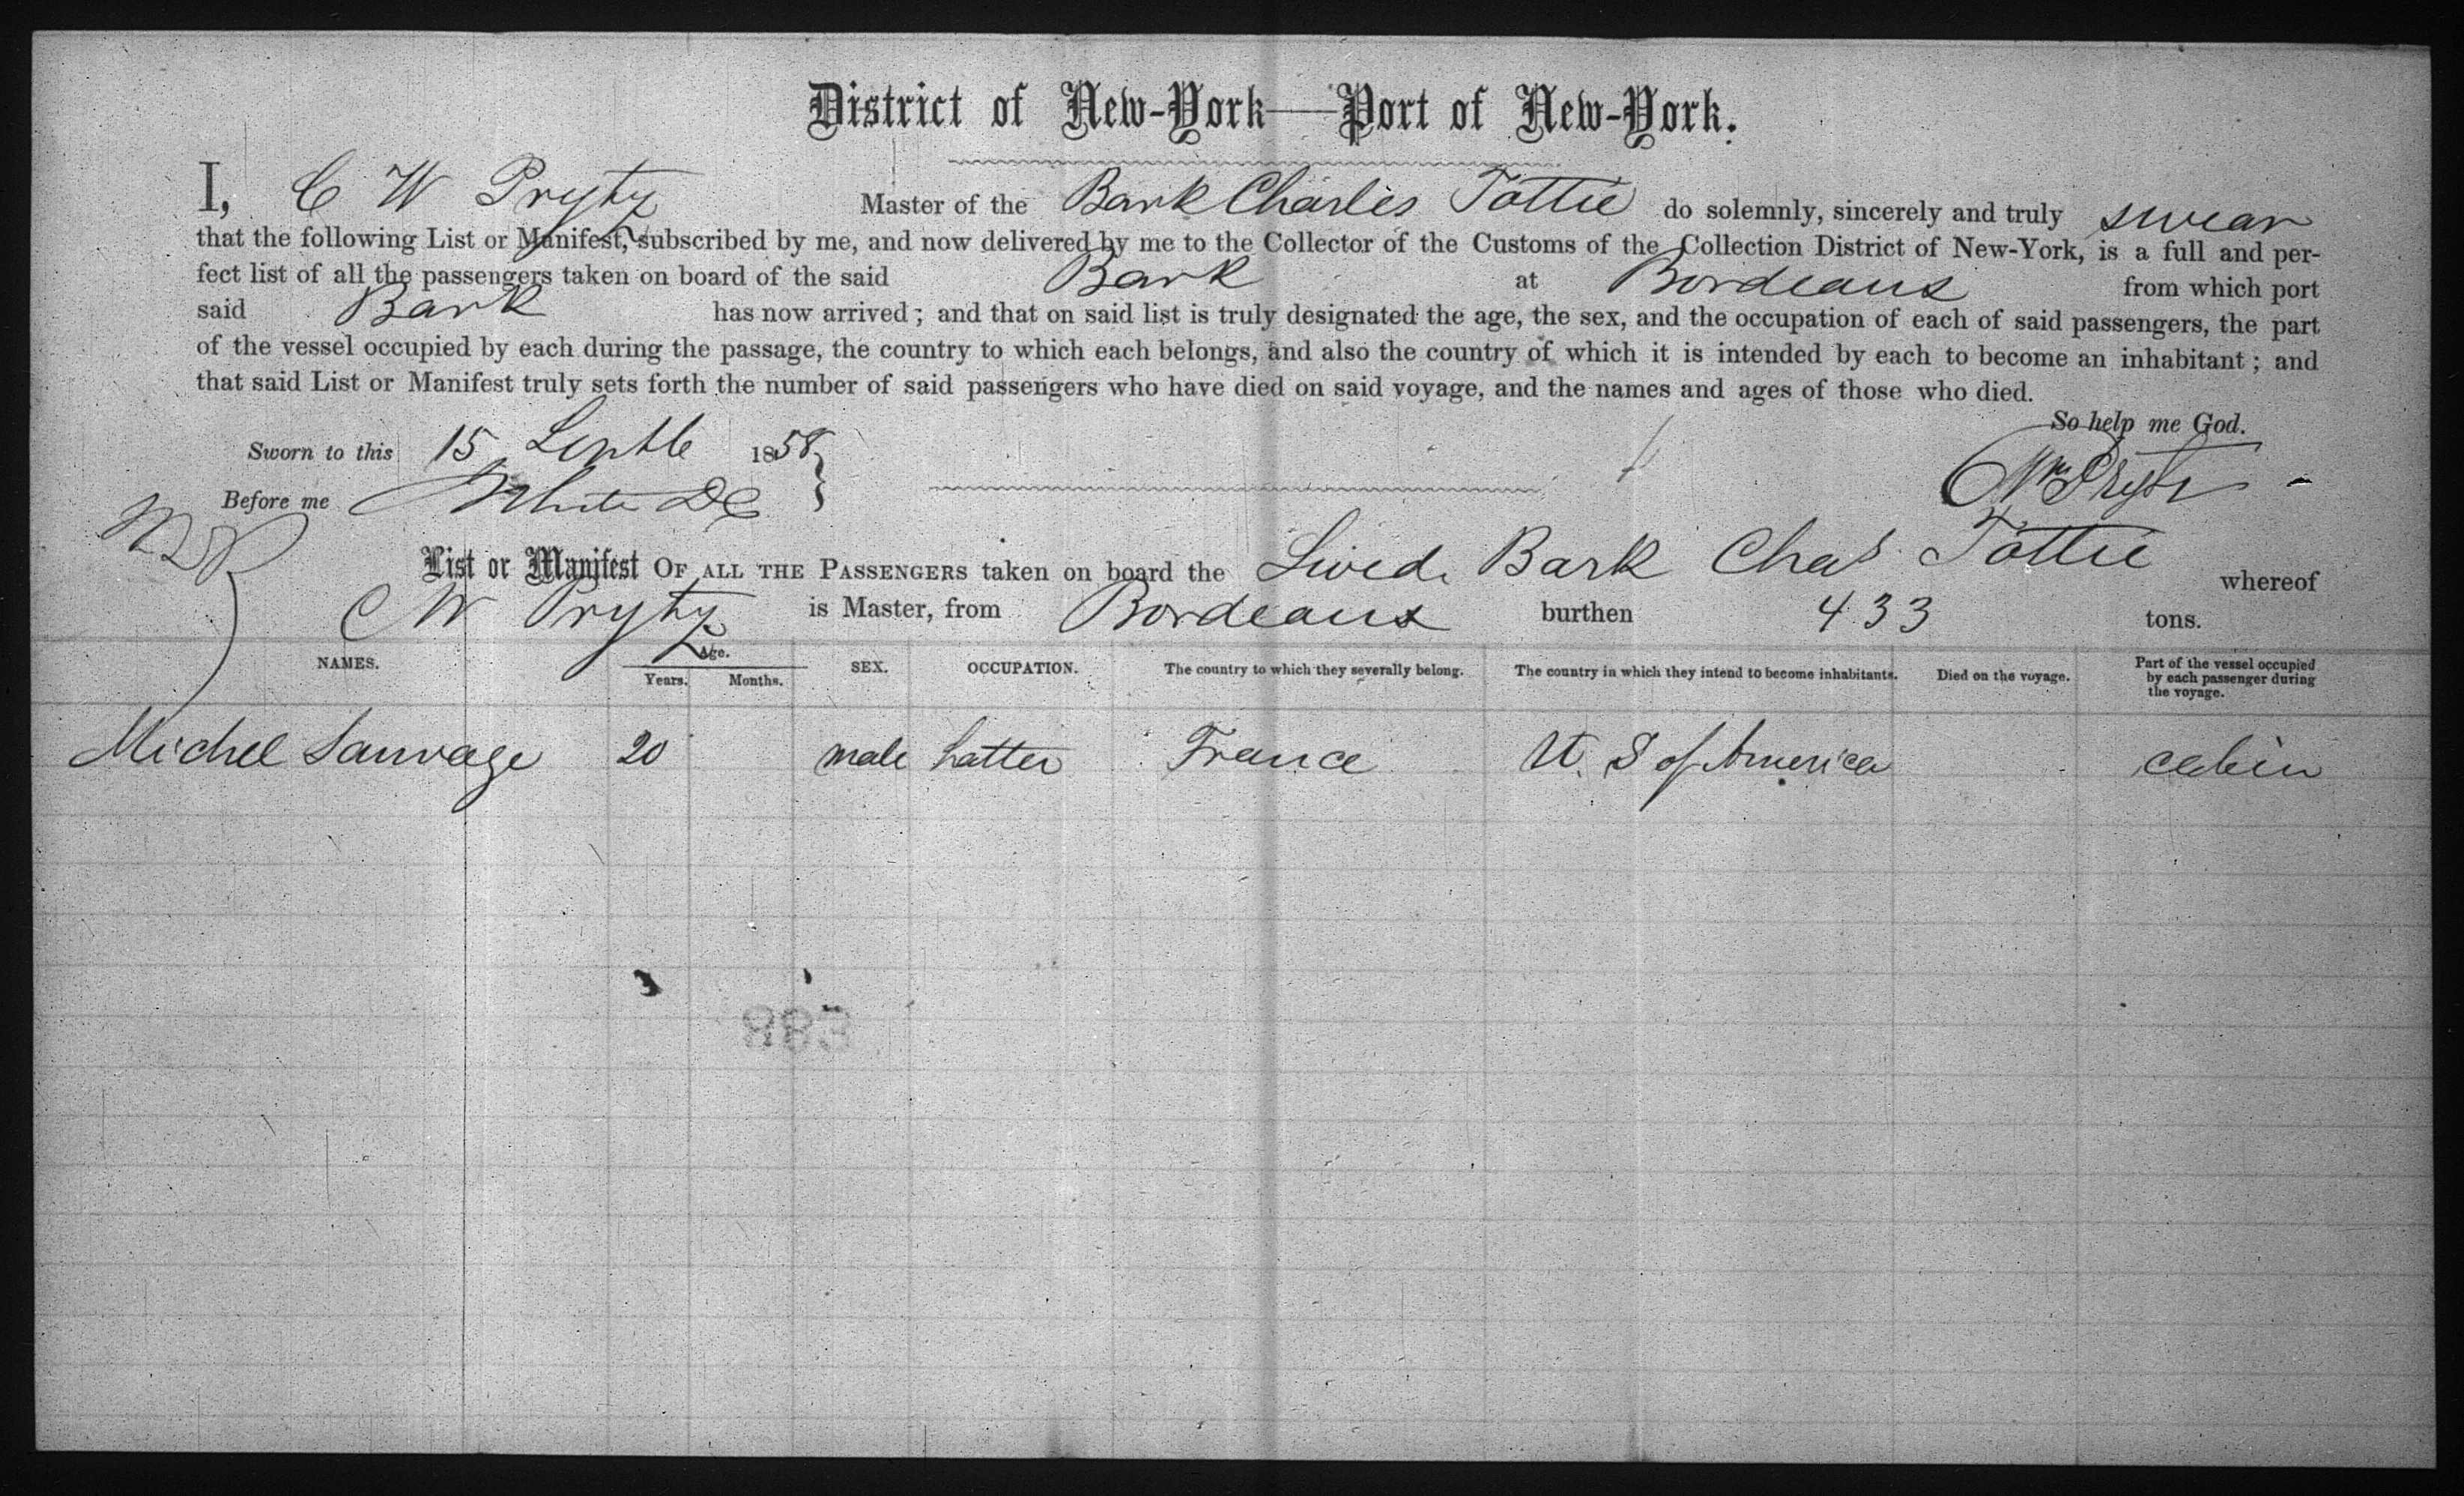 District of New-York—Port of New-York.
I, C W Prytz Master of the Bark Charles Tottie do solemnly, sincerely and truly swear
that the following List or Manifest, subscribed by me, and now delivered by me to the Collector of the Customs of the Collection District of New-York, is a full and per-
fect list of all the passengers taken on board of the said Bark at Bordeaux from which port
said Bark has now arrived; and that on said list is truly designated the age, the sex, and the occupation of each of said passengers, the part
of the vessel occupied by each during the passage, the country to which each belongs, and also the country of which it is intended by each to become an inhabitant; and
that said List or Manifest truly sets forth the number of said passengers who have died on said voyage, and the names and ages of those who died.
So help me God.
Sworn to this 15 Septb 1858
Before me White DC
Prytz
List or Manifest OF ALL THE PASSENGERS taken on board the Swed. Bark Chas Tottie whereof
C W Prytz is Master, from Bordeaux burthen 433 tons.
NAMES. Age. Years. Months. SEX. OCCUPATION. The country to which they severally belong. The country in which they intend to become inhabitants. Died on the voyage. Part of the vessel occupied by each passenger during the voyage.
Michel Sauvage 20 male hatter France U. S of America cabin